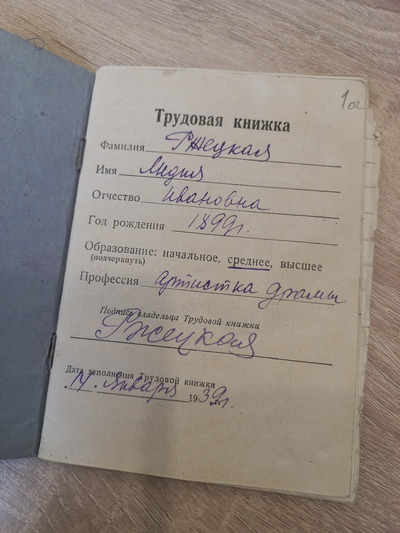 1 ог
Трудовая книжка
Фамилия Ржецкая
Имя Лидия
Отчество Ивановна
Год рождения 1899г.
Образование: начальное, среднее, высшее
(подчеркнуть)
Профессия артистка драмы
Подпись владельца Трудовой книжки
Ржецкая
Дата заполнения Трудовой книжки
14. Января 1939г.